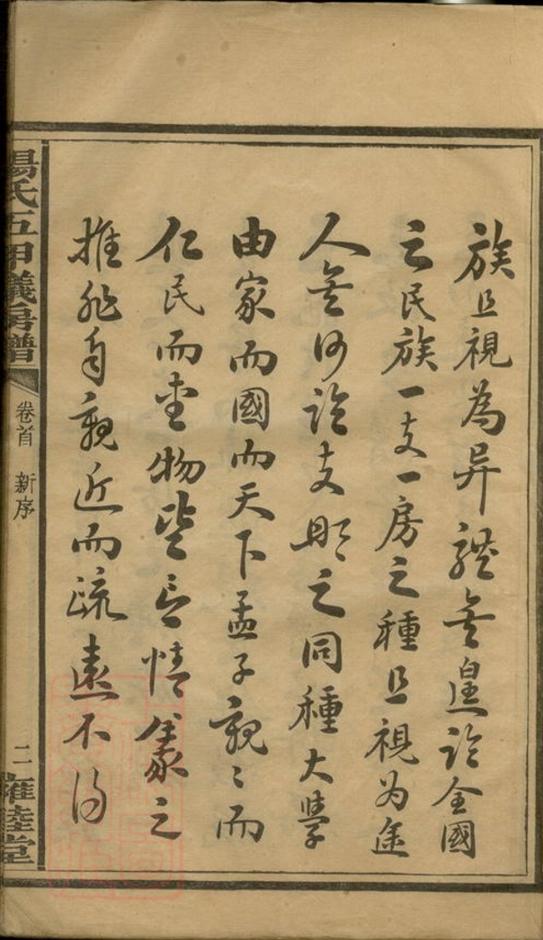 族且視為异體矣遑論全國
之民族一支一房之種且視為途
人矣何論支那之同種大學
由家而國而天下孟子親〻而
仁民而愛物皆言情義之
推非自親近而疏遠不得
楊氏五甲儀房譜
卷首 新序
二
雍睦堂